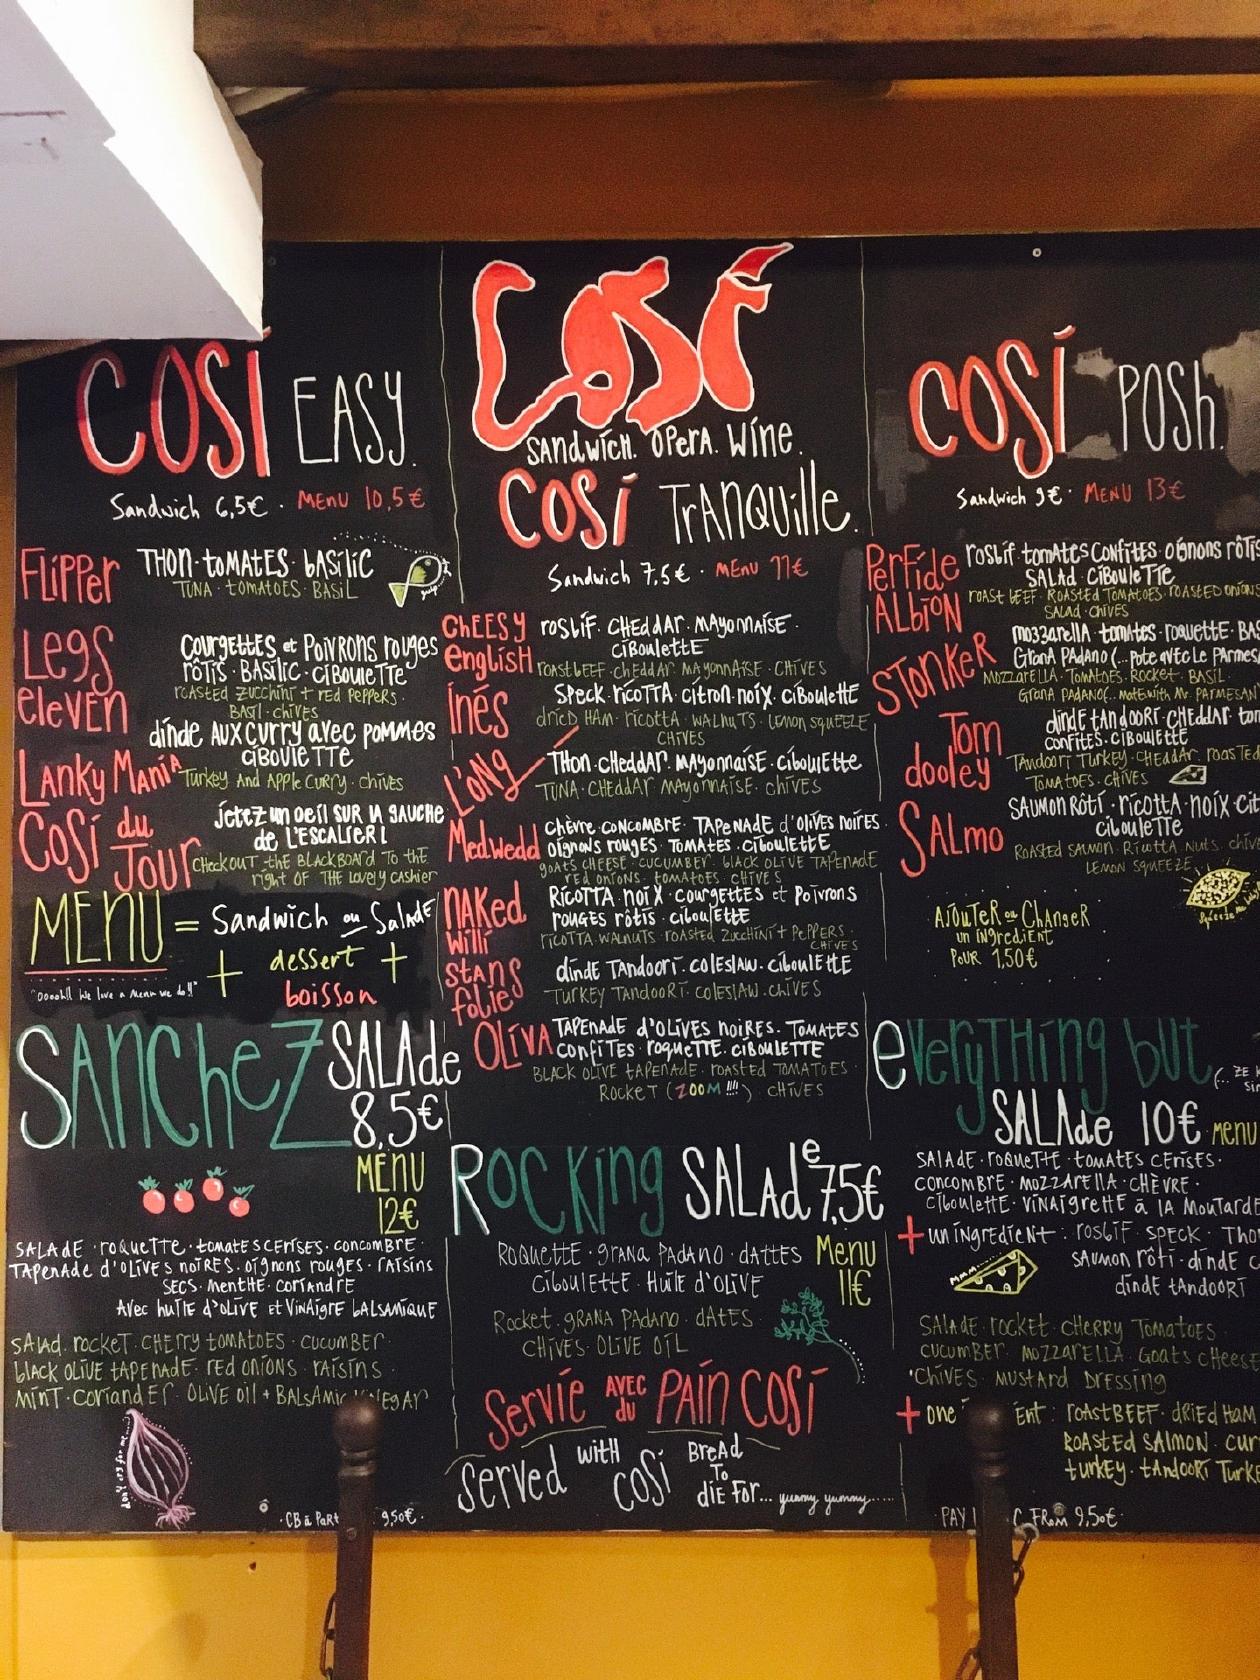 COSÍ EASY.
Sandwich 6,5€ · MENU 10,5€
FLIPPER
THON · TOMATES · BASILIC
TUNA · TOMATOES · BASIL
gulp
LEGS ELEVEN
COURGETTES et POIVRONS ROUGES
RÔTIS · BASILIC · CIBOULETTE
ROASTED ZUCCHINI + RED PEPPERS ·
BASIL · CHIVES
LANKY MANIA
DINDE AUX CURRY AVEC POMMES
CIBOULETTE
TURKEY AND APPLE CURRY · CHIVES
COSÍ du JOUR
JETEZ UN OEIL SUR LA GAUCHE
DE L'ESCALIER!
CHECKOUT THE BLACKBOARD TO THE
RIGHT OF THE LOVELY CASHIER
MENU = Sandwich ou SALADE
+ dessert +
boisson
"Ooooh!! We love a Menu we do!!"
SANCHEZ SALADE
8,5€
MENU
12€
SALADE · ROQUETTE · TOMATES CERISES · CONCOMBRE ·
TAPENADE D'OLIVES NOIRES · OIGNONS ROUGES · RAISINS
SECS · MENTHE · CORIANDRE
AVEC HUILE D'OLIVE ET VINAIGRE BALSAMIQUE
SALAD · ROCKET · CHERRY TOMATOES · CUCUMBER ·
BLACK OLIVE TAPENADE · RED ONIONS · RAISINS ·
MINT · CORIANDER · OLIVE OIL + BALSAMIC VINEGAR
don't cry for me...
· CB à PART 9,50€ ·
COSÍ
SANDWICH. OPERA. WINE.
COSÍ TRANQUILLE.
Sandwich 7,5€ · MENU 11€
CHEESY ENGLISH
ROSBIF · CHEDDAR · MAYONNAISE ·
CIBOULETTE
ROASTBEEF · CHEDDAR · MAYONNAISE · CHIVES
INÉS
SPECK · RICOTTA · CITRON · NOIX · CIBOULETTE
DRIED HAM · RICOTTA · WALNUTS · LEMON SQUEEZE
CHIVES
L'ÓNG
THON · CHEDDAR · MAYONNAISE · CIBOULETTE
TUNA · CHEDDAR · MAYONNAISE · CHIVES
MEDWEDD
CHÈVRE · CONCOMBRE · TAPENADE D'OLIVES NOIRES ·
OIGNONS ROUGES · TOMATES · CIBOULETTE
GOATS CHEESE · CUCUMBER · BLACK OLIVE TAPENADE
RED ONIONS · TOMATOES · CHIVES
NAKED WILLI
RICOTTA · NOIX · COURGETTES et POIVRONS
ROUGES RÔTIS · CIBOULETTE
RICOTTA · WALNUTS · ROASTED ZUCCHINI + PEPPERS ·
CHIVES
STANS FOLIES
DINDE TANDOORI · COLESLAW · CIBOULETTE
TURKEY TANDOORI · COLESLAW · CHIVES
OLIVA
TAPENADE D'OLIVES NOIRES · TOMATES
CONFITES · ROQUETTE · CIBOULETTE
BLACK OLIVE TAPENADE · ROASTED TOMATOES ·
ROCKET (ZOOM!!!!) · CHIVES
ROCKING SALADe 7,5€
Menu
11€
ROQUETTE · GRANA PADANO · DATTES
CIBOULETTE · HUILE D'OLIVE
ROCKET · GRANA PADANO · DATES
CHIVES · OLIVE OIL
Servie AVEC DU PAIN COSÍ
SERVED WITH COSÍ BREAD TO DIE FOR... yummy yummy......
COSÍ POSH.
Sandwich 9€ · MENU 13€
PERFIDE ALBION
ROSBIF · TOMATES CONFITES · OIGNONS RÔTIS
SALAD · CIBOULETTE
ROAST BEEF · ROASTED TOMATOES · ROASTED ONIONS
SALAD · CHIVES
STONKER
MOZZARELLA · TOMATES · ROQUETTE · BAS
GRANA PADANO (...POTE AVEC LE PARMES
MOZZARELLA · TOMATOES · ROCKET · BASIL ·
GRANA PADANO (.. MATE WITH MR PARMESAN
TOM DOOLEY
DINDE TANDOORI · CHEDDAR · TOM
CONFITES · CIBOULETTE
TANDOORI TURKEY · CHEDDAR · ROASTED
TOMATOES · CHIVES
SALMO
SAUMON RÔTI · RICOTTA · NOIX · CIT
CIBOULETTE
ROASTED SALMON · RICOTTA · NUTS · CHIVE
LEMON SQUEEZE
Squeeze me
AJOUTER ou CHANGER
UN INGREDIENT
POUR 1,50€
EVERYTHING BUT
SALADE 10€ MENU
SALADE · ROQUETTE · TOMATES CERISES ·
CONCOMBRE · MOZZARELLA · CHÈVRE ·
CIBOULETTE · VINAIGRETTE à LA MOUTARDE
+ UN INGREDIENT : ROSBIF · SPECK · THO
SAUMON RÔTI · DINDE C
DINDE TANDOORI
MMM...
SALADE · ROCKET · CHERRY TOMATOES ·
CUCUMBER · MOZZARELLA · GOATS CHEESE
· CHIVES · MUSTARD DRESSING
+ ONE ENT : ROASTBEEF · DRIED HAM
ROASTED SALMON · CUR
TURKEY · TANDOORI TURKE
· PAY C FROM 9,50€ ·